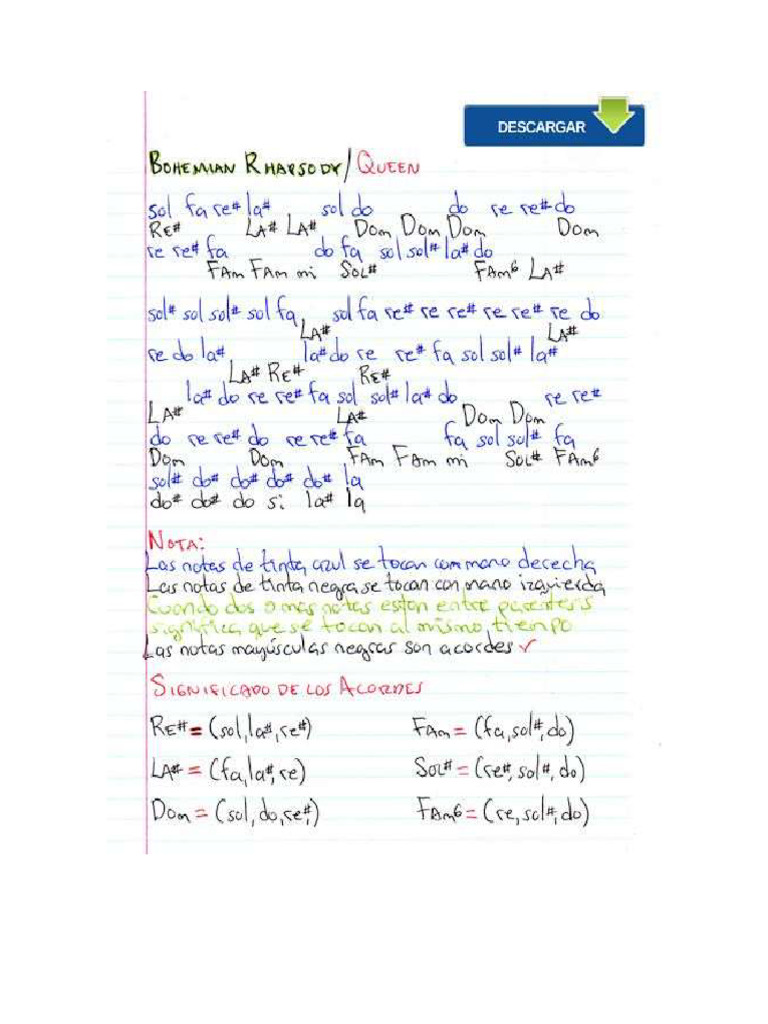 DESCARGAR
BOHEMIAN RHAPSODY/QUEEN
sol fa re# la# sol do do re re# do
RE# LA# LA# DOm DOm DOm DOm
re re# fa do fa sol sol# la# do
FAm FAm mi SOL# FAm6 LA#
sol# sol sol# sol fa sol fa re# re re# re re# re do
LA# LA#
re do la# la# do re re# fa sol sol# la#
LA# RE# RE#
la# do re re# fa sol sol# la# do re re#
LA# LA# DOm DOm
do re re# do re re# fa fa sol sol# fa
DOm DOm FAm FAm mi SOL# FAm6
sol# do# do# do# do# la
do# do# do si la# la
NOTA:
Las notas de tinta azul se tocan com mano derecha
Las notas de tinta negra se tocan con mano izquierda
Cuando dos o mas notas estan entre parentesis
significa que se tocan al mismo tiempo
Las notas mayúsculas negras son acordes ✓
SIGNIFICADO DE LOS ACORDES
RE# = (sol, la#, re#) FAm = (fa, sol#, do)
LA# = (fa, la#, re) SOL# = (re#, sol#, do)
DOm = (sol, do, re#) FAm6 = (re, sol#, do)